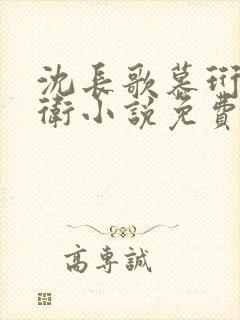 沈長歌慕珩
衛小說免費
高專誠